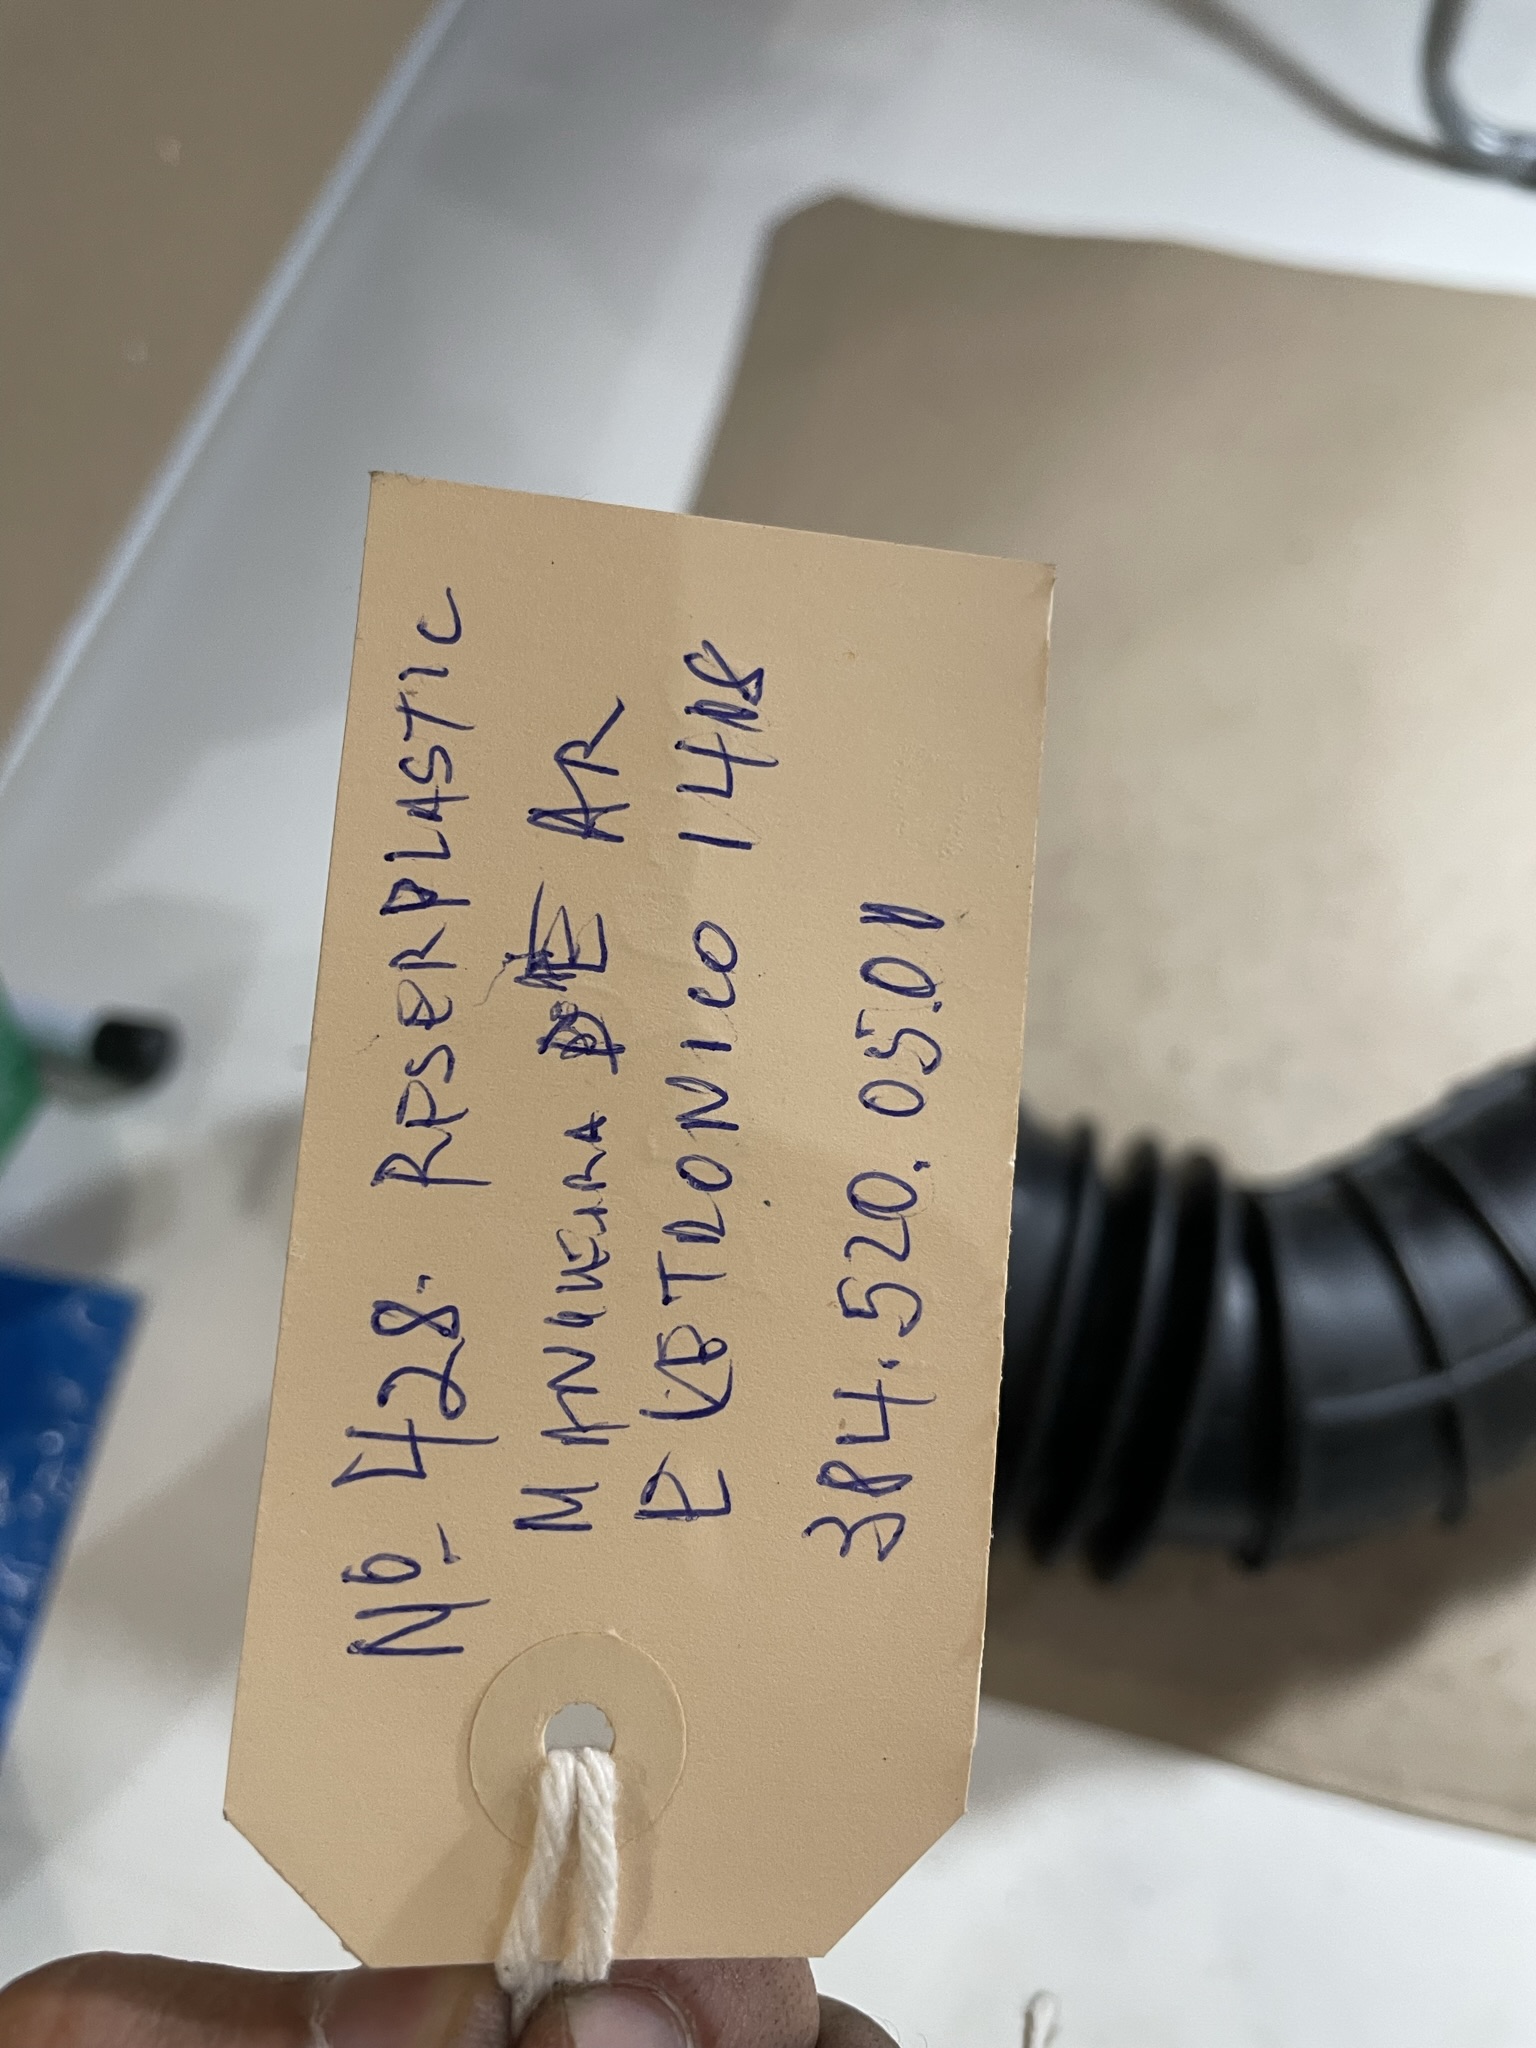 Nº 428. RPSERPLASTIC
MANGUEIRA DE AR
ELETRONICO 1418
384.520.0501